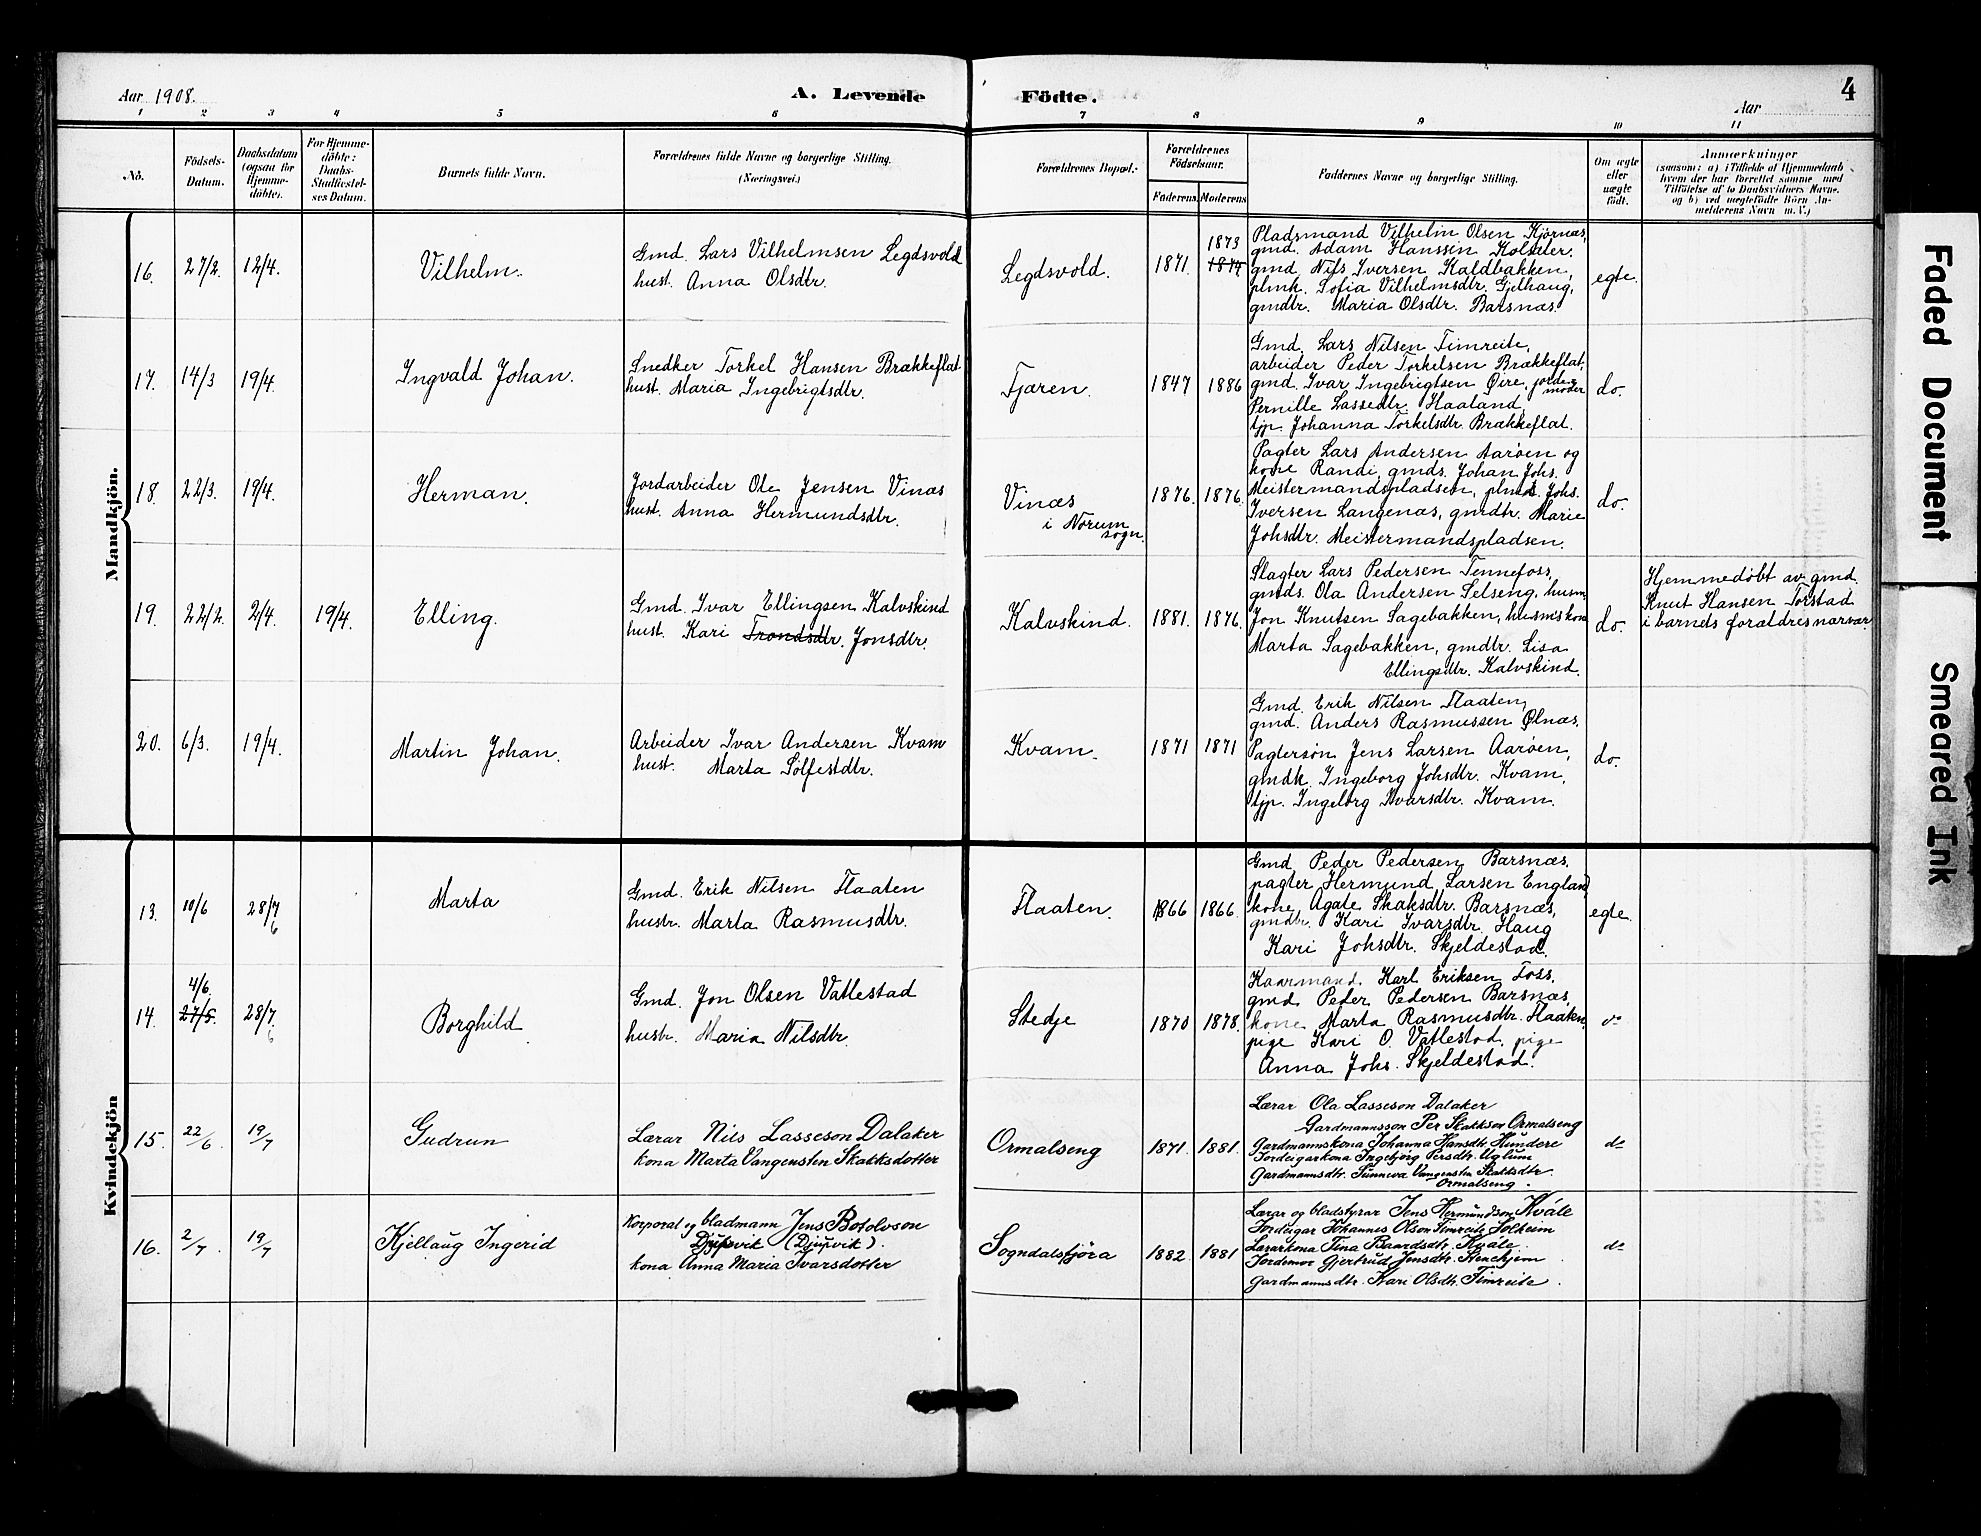 Aar 1908.
A. Levende Födte.
4
Aar
1 2 3 4 5 6 7 8 9 10 11
No.
Födsels-
Datum.
Daabsdatum
(ogsaa for
Hjemme-
döbte).
For Hjemme-
döbte:
Daabs-
Stadfæstel-
ses Datum.
Barnets fulde Navn.
Forældrenes fulde Navne og borgerlige Stilling.
(Næringsvei.)
Forældrenes Bopæl.
Forældrenes
Födselsaar.
Faderens. Moderens.
Faddernes Navne og borgerlige Stilling.
Om ægte
eller
uægte
födt.
Anmærkninger
(saasom: a) i Tilfælde af Hjemmedaab
hvem der har forrettet samme med
Tilföielse af to Daabsvidners Navne.
og b) ved uægtefödte Börn An-
melderens Navn m. V.)
Mandkjön.
16. 27/2. 12/4.
Vilhelm.
Gmd. Lars Vilhelmsen Legdsvold
hust. Anna Olsdtr.
Legdsvold.
1871. 1873
1874
Pladsmand Vilhelm Olsen Kjørnæs,
gmd. Adam Hanssen Kolsæter.
gmd Nils Iversen Kaldbakken,
plmk. Sofia Vilhelmsdtr. Gjelhaug,
gmdtr. Maria Olsdtr. Barsnæs.
egte.
17. 14/3 19/4.
Ingvald Johan.
Snedker Torkel Hansen Brækkeflat
hust. Maria Ingebrigtsdtr.
Fjæren.
1847 1886
Gmd. Lars Nilsen Timreite,
arbeider Peder Torkelsen Brækkeflat,
gmd. Ivar Ingebrigtsen Øire, jorde-
moder
Pernille Lassedtr. Haaland,
tjp. Johanna Torkelsdtr. Brækkeflat.
do.
18. 22/3. 19/4.
Herman.
Jordarbeider Ole Jensen Vinæs
hust. Anna Hermundsdtr.
Vinæs
i Norum
sogn.
1876. 1876.
Pagter Lars Andersen Aarøen og
kone Randi, gmds. Johan Johs.
Meistermandspladsen, plmds. Johs.
Iversen Langenæs, gmdtr. Marie
Johsdtr. Meistermandspladsen.
do.
19. 22/2. 2/4. 19/4.
Elling.
Gmd. Ivar Ellingsen Kalvskind
hust. Kari Trondsdtr. Jonsdtr.
Kalvskind.
1881. 1876.
Slagter Lars Pedersen Tennefoss,
gmds. Ola Andersen Selseng, husm.
Jon Knutsen Sagebakken, husm's kone
Marta Sagebakken, gmdtr. Lisa
Ellingsdtr. Kalvskind.
do.
Hjemmedøbt av gmd.
Knut Hansen Torstad
i barnets forældres nærvær.
20. 6/3. 19/4.
Martin Johan.
Arbeider Ivar Andersen Kvam
hust. Marta Sølfestdtr.
Kvam.
1871 1871
Gmd. Erik Nilsen Flaaten,
gmd. Anders Rasmussen Ølnæs.
Pagtersøn Jens Larsen Aarøen,
gmdk. Ingeborg Johsdtr. Kvam,
tjp. Ingeborg Ivarsdtr. Kvam.
do.
Kvindekjön
13. 10/6 28/7
6
Marta
Gmd. Erik Nilsen Flaaten
hustr. Marta Rasmusdtr.
Flaaten.
1866 1866.
Gmd. Peder Pedersen Barsnæs.
pagter Hermund Larsen England,
kone Agate Skaksdtr. Barsnæs,
gmdtr. Kari Ivarsdtr. Haug
Kari Johsdtr. Skjeldestad.
egte.
14. 4/6.
27/5. 28/7.
6
Borghild
Gmd. Jon Olsen Vatlestad
hustr. Maria Nilsdtr.
Stedje
1870 1878.
Kaarmand. Karl Eriksen Foss.
gmd. Peder Pedersen Barsnæs.
kone Marta Rasmusdtr. Flaaten.
pige Kari O. Vatlestad, pige
Anna Johs. Skjeldestad.
do
15. 22/6 19/7
Gudrun
Lærar Nils Lasseson Dalaker
kona Marta Vangensten Skakksdotter
Ormalseng
1871. 1881.
Lærar Ola Lasseson Dalaker
Gardmannsson Per Skakkson Ormalseng
Gardmannskona Johanna Hansdtr. Hundere
Jordeigarkona Ingebjörg Persdtr. Uglum
Gardmannsdtr. Sunneva Vangensten Skakksdtr.
Ormalseng.
do
16. 2/7. 19/7
Kjellaug Ingerid
Korporal og bladmann Jens Botolvson
Djupvik (Djupvik).
kona Anna Maria Ivarsdotter
Sogndalsfjöra
1882 1881
Lærar og bladstyrar Jens Hermundson Kvåle
Jordeigar Johannes Olson Timreite Solheim
Lærarkona Tina Baardsdtr. Kvåle.
Jordemor Gjertrud Jensdtr. Stenehjem
Gardmannsdtr. Kari Olsdtr. Timreite.
do
Faded Document
Smeared Ink